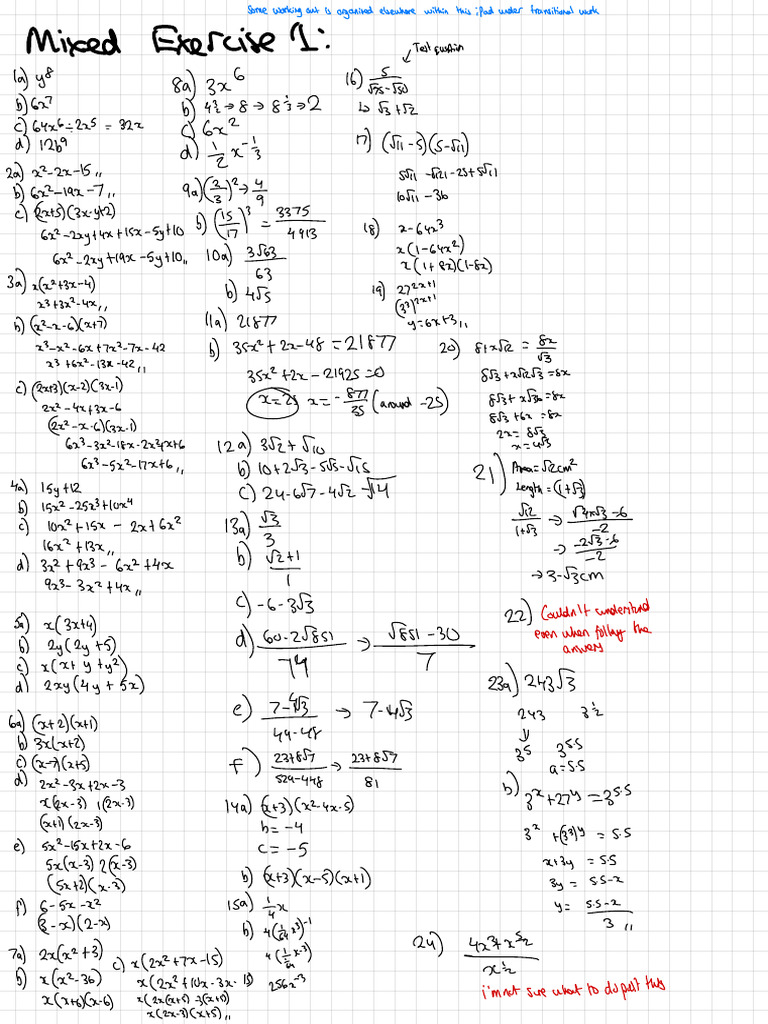 Some working out is organised elsewhere within this iPad under transitional work
Mixed Exercise 1:
1a) y⁸
b) 6x⁷
c) 64x⁶ ÷ 2x⁵ = 32x
d) 12b⁹
2a) x²-2x-15,,
b) 6x²-19x-7,,
c) (2x+5)(3x-y+2)
6x²-2xy+4x+15x-5y+10
6x²-2xy+19x-5y+10,,
3a) x(x²+3x-4)
x³+3x²-4x,,
b) (x²-x-6)(x+7)
x³-x²-6x+7x²-7x-42
x³+6x²-13x-42,,
c) (2x+3)(x-2)(3x-1)
2x²-4x+3x-6
(2x²-x-6)(3x-1)
6x³-3x²-18x-2x²+x+6
6x³-5x²-17x+6,,
4a) 15y+12
b) 15x²-25x³+10x⁴
c) 10x²+15x - 2x+6x²
16x²+13x,,
d) 3x²+9x³-6x²+4x
9x³-3x²+4x,,
5a) x(3x+4)
b) 2y(2y+5)
c) x(x+y+y²)
d) 2xy(4y+5x)
6a) (x+2)(x+1)
b) 3x(x+2)
c) (x-7)(x+5)
d) 2x²-3x+2x-3
x(2x-3) 1(2x-3)
(x+1)(2x-3)
e) 5x²-15x+2x-6
5x(x-3) 2(x-3)
(5x+2)(x-3)
f) 6-5x-x²
(3-x)(2-x)
7a) 2x(x²+3)
b) x(x²-36)
x(x+6)(x-6)
c) x(2x²+7x-15)
x(2x²+10x-3x-15)
x(2x(x+5)-3(x+5))
x(2x-3)(x+5),,
8a) 3x⁶
b) 4½ → 8 → 8⅓ → 2
c) 6x²
d) 1/2 x^-1/3
9a) (2/3)² → 4/9
b) (15/17)³ = 3375/4913
10a) 3√63/63
b) 4√5
11a) 21877
b) 35x²+2x-48 = 21877
35x²+2x-21925=0
x=25 x=-877/35 (around -25)
12a) 3√2+√10
b) 10+2√3-5√5-√15
c) 24-6√7-4√2-√14
13a) √3/3
b) √2+1/1
c) -6-3√3
d) 60-2√851/74 → √851-30/7
e) 7-4√3/49-48 → 7-4√3
f) 23+8√7/529-448 → 23+8√7/81
14a) (x+3)(x²-4x-5)
b=-4
c=-5
b) (x+3)(x-5)(x+1)
15a) 1/4 x
b) 4(1/64 x³)⁻¹
4(1/64 x⁻³)
256x⁻³
Test question
16) 5/√75-√50
↳ √3+√2
17) (√11-5)(5-√11)
5√11-√121-25+5√11
10√11-36
18) x-64x³
x(1-64x²)
x(1+8x)(1-8x)
19) 27^2x+1
(3³)^2x+1
y=6x+3,,
20) 8+x√12 = 8x/√3
8√3+x√12√3=8x
8√3+x√36=8x
8√3+6x=8x
2x=8√3
x=4√3
21) Area=√12cm²
Length=(1+√3)
√12/1+√3 → √4√3-6/-2
→ -2√3-6/-2
→ 3-√3cm
22) Couldn't understand
even when following the
answers
23a) 243√3
243 3^½
3⁵ 3^5.5
a=5.5
b) 3^x+27^y=3^5.5
3^x+(3³)^y=5.5
x+3y=5.5
3y=5.5-x
y=5.5-x/3,,
24) 4x³+x^5/2 / x^½
i'm not sure what to do past this